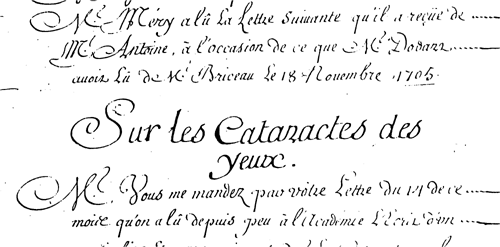 Mr. Méry a lû la Lettre suivante qu'il a reçüe de
Mr. Antoine, à l'occasion de ce que Mr. Dodart
avoit lû de Mr. Briceau le 18 Novembre 1705
Sur les Cataractes des
yeux.
Mr. Vous me mandez par vôtre Lettre du 14 de ce
mois qu'on a lû depuis peu à l'Académie L'Ecrit d'un